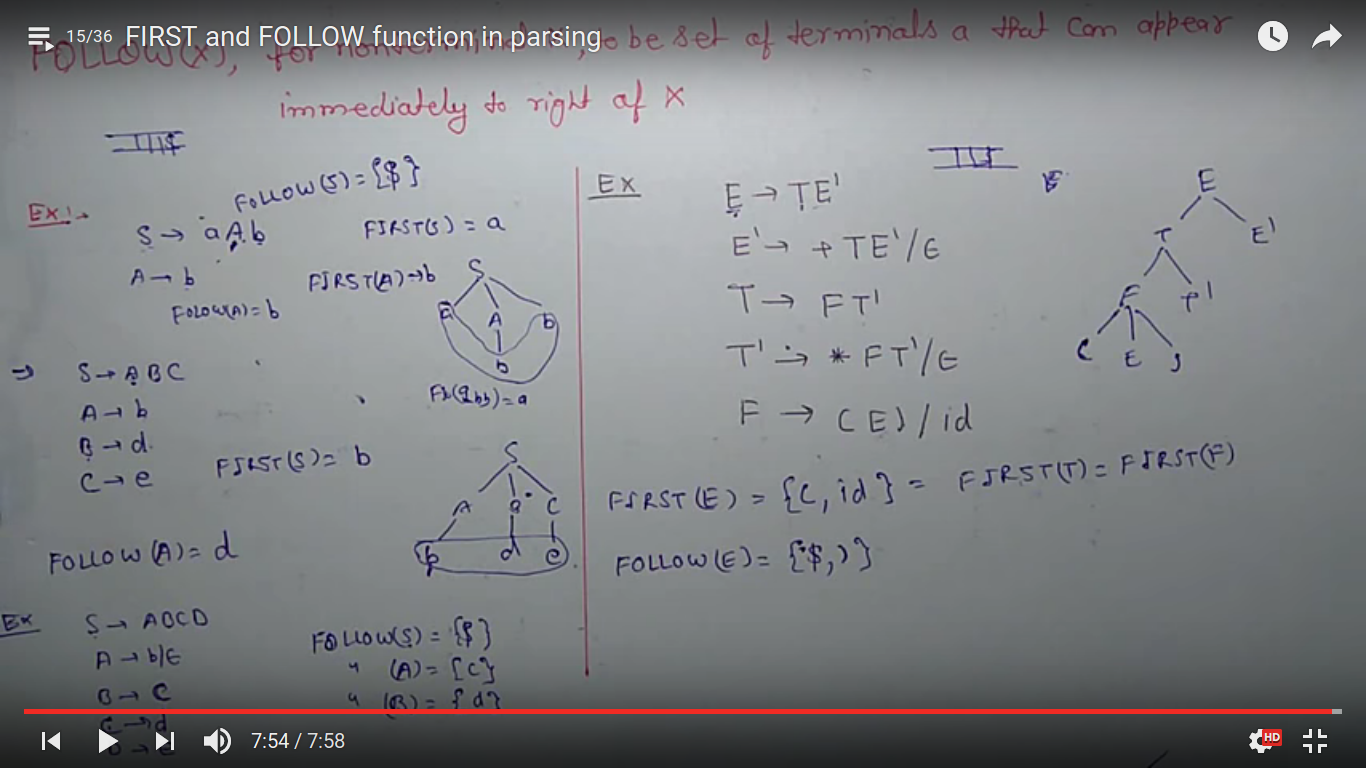 15/36 FIRST and FOLLOW function in parsing
FOLLOW(X), for nonterminal to be set of terminals a that can appear
immediately to right of X
III
FOLLOW(S) = {$}
Ex:-
S → aAb
FIRST(S) = a
A → b
FIRST(A) → b
FOLOW(A) = b
S
a A b
b
⇒ S → ABC
A → b
B → d
C → e
FIRST(S) = b
S
A B C
b d e
FOLLOW(A) = d
Ex S → ABCD
A → b/ε
B → C
C → d
FOLLOW(S) = {$}
" (A) = {C}
" (B) = {d}
Ex
III
E → TE'
E' → +TE'/ε
T → FT'
T' → *FT'/ε
F → (E)/id
E
T E'
F T'
( E )
FIRST(E) = {(, id} = FIRST(T) = FIRST(F)
FOLLOW(E) = {$, )}
7:54 / 7:58
HD